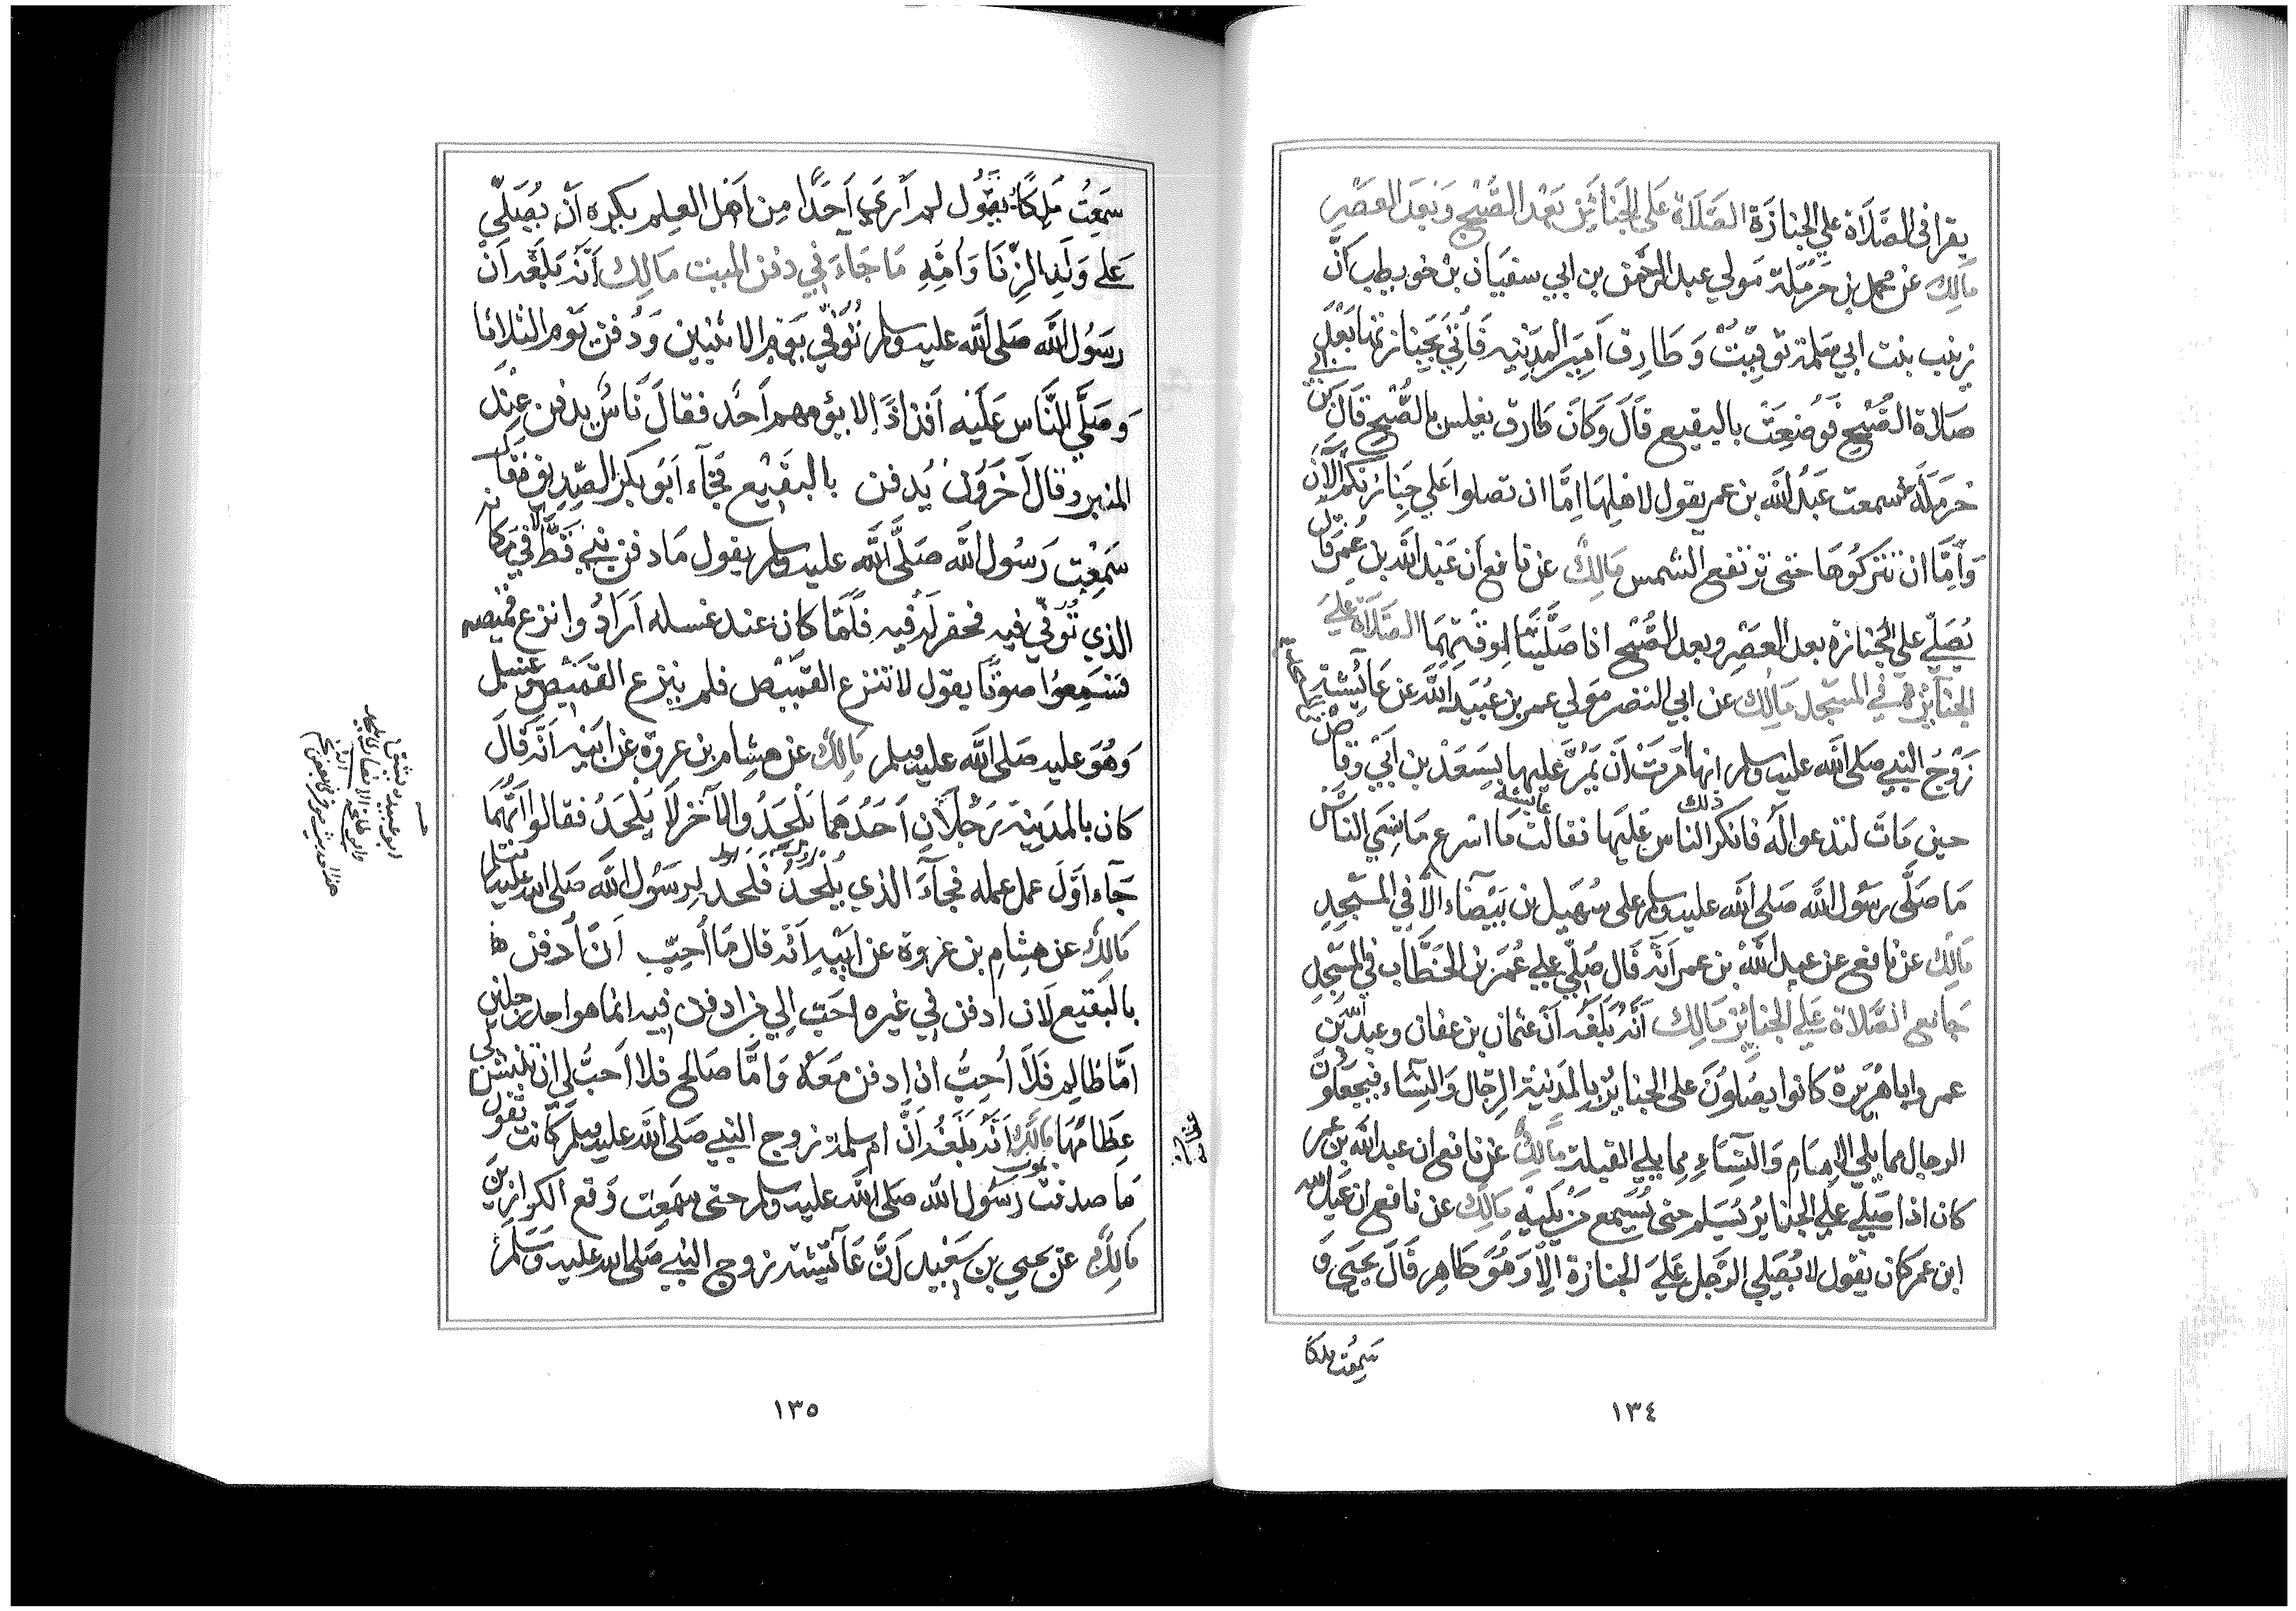 يقرا في الصَّلَاة علي الجنازَة الصَّلَاة عَلى الجَنائِزِ بَعْدَ الصُّبْحِ وَبَعدَ العَصْرِ
مَالِك عَن محمد بن حَرْمَلة مَولي عبد الرَّحمٰن بن ابي سفيَان بن حويطب اَنَّ
زينب بنت ابي سَلمة توفِيتْ وَطَارِق اَمِيرُ المدِينةِ فَأُتِيَ بِجَنازتها بَعْدَ
صَلاة الصُّبْحِ فَوُضِعَتْ بالبقيع قَالَ وَكَانَ طَارق يغلس بالصُّبْحِ قَالَ ابن ابي
حَرمَلَة سمعت عَبدَ اللّه بن عمر يقول لاهلِهَا اِمَّا ان تصلوا عَلي جَنِازتكم الآنَ
وَاِمَّا ان تَتركُوهَا حتى ترتفع الشمس مَالِكٌ عن نافع اَن عَبدَ اللّه بن عُمَرَ قال
يُصَلّي عَلي الجَنازة بعد العَصْرِ وبعد الصُّبْحِ اذا صُلِّيَتَا لِوَقتِهِمَا الصَّلَاة عَلَي
الجنَائِز في المسْجد مَالِك عن ابي النضر مَولي عمر بن عُبَيدِ اللّه عَن عَائِشَة
زَوْجِ النبي صَلى اللّه عليه وسلم انها اَمَرَتْ اَن يُمَرَّ عَليها بِسَعْد بن اَبيْ وقاصٍ
حين مَاتَ لتدعو لَه فانكر ذلك الناس عَلَيها فقالت عايشة مَا اسرع مَا نَسِيَ النَاسُ
مَا صَلَّى رسُول اللّه صَلى اللّه عليه وسلم على سُهَيل بن بَيْضَاء الَّا في المَسْجِدِ
مَالِك عَن نافع عن عبد اللّهِ بن عمر اَنَّه قَال صُلّيَ علي عُمَرَ بن الخَطَّاب في المسْجِدِ
جَامع الصَّلاة عَلي الجنائِز مَالِك اَنَّه بَلَغَه اَنَّ عثمان بن عفان وعبد اللّه بن
عمر وابا هُرَيْرة كانوا يصَلونَ على الجنائز بالمدينة الرِجَال وَالنِسَاء فيجعَلُونَ
الرجال مما يلي الاِمَام وَالنِسَاءِ مما يلي القبلة مَالِكٌ عَن نافع ان عبد اللّه بن عمر
كان اذا صَلي علي الجنايز يُسَلم حتى يُسْمِعَ مَنْ يَلِيْهِ مَالِك عن نافع ان عَبد اللّه
ابن عمر كان يقول لا يُصَلي الرَّجل عَلي الجنازة الَّا وَهُوَ طَاهِر قَالَ يحيَيَ وَ
سَمِعْت ملكا
١٣٤
سَمِعْتُ مَلِكًا يقُول لم اَرَ اَحَدًا مِن اَهْل العِلم يكره اَنْ يُصَلّي
عَلي وَلدِ الزِّنَا وَاُمِّهِ مَا جَاءَ في دفن الميت مَالِك اَنَّهُ بَلَغَه اَنَّ
رَسُول اللَّه صَلى اللَّه عليه وسلم تُوُفِّيَ يَوْمَ الاثنين وَدُفنَ يَوْم الثلاثا
وَصَلَّي النَّاس عَلَيْه اَفذاذًا لا يؤمهم اَحَد فقالَ نَاسٌ يدفن عِنْدَ
المنبر وقال آخَرُونَ يُدفن بالبَقِيْع فجَاء اَبُو بكر الصِّدِيق فقال
سَمِعْتُ رَسُول اللَّه صَلَّى اللَّه عليه وسلم يقول مَا دفن نبي قَطُّ الا في مَكانه
الذي تُوُفِّيَ فيه فحفر لَه فيه فَلَمَّا كان عند غسله اَرَادُوا نزع قميصه
فسَمِعُوا صوتًا يقول لا تنزع القميْص فلم ينزع القميْص وغسل
وَهُوَ عليه صَلى اللَّه عليه وسلم مَالِكٌ عن هشام بن عروة عَن ابيه اَنَّه قَالَ
كان بالمَدِينَةِ رَجُلَانِ اَحَدُهمَا يَلْحَدُ وَالآخَر لَا يَلْحَدُ فقالوا اَيُّهُمَا
جَاء اَوَّلَ عمل عمله فجآءَ الذي يُلْحَدُ فَلَحَدَ لرسُول اللَّه صَلى الله عليه وسلم
مَالِكٌ عن هشام بن عروة عن ابيه اَنَّه قال مَا اُحِبّ اَنْ اُدفن
بالبَقيع لَان ادفن في غيره احَبّ اِلي من ان ادفن فيه انما هو احد رجلين
اَمَّا ظالِم فَلَا اُحِبُّ ان ادفن مَعَهُ وَامَّا صَالح فلا اُحبُّ ان تنبش لي
عِظَامُهَا مَالِكٌ اَنَّهُ بَلَغَهُ اَنَّ ام سلمة زوج النبي صَلى اللَّه عليه وسلم كَانَت تَقول
مَا صدقت بموت رَسُول اللّه صَلى اللَّه عليه وسلم حتى سَمعت وَقع الكرازين
مَالِكٌ عَن يحيى بن سَعيْد اَنَّ عَائِشة زوج النبي صَلى الله عليه وَسَلمَ
١٣٥